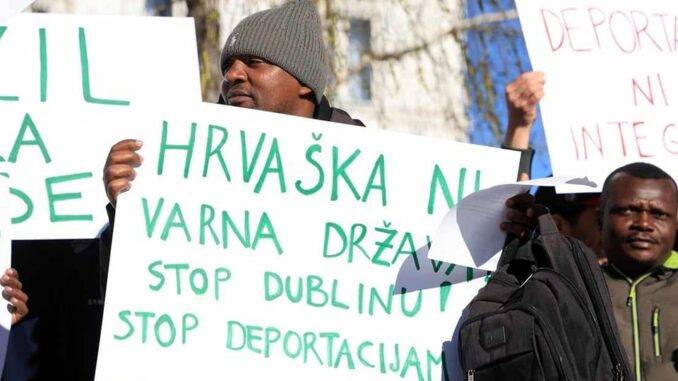 ZIL
ZA
SE
HRVAŠKA NI
VARNA DRŽAVA
STOP DUBLINU!
STOP DEPORTACIJAM
DEPORTA
NI
INTEG